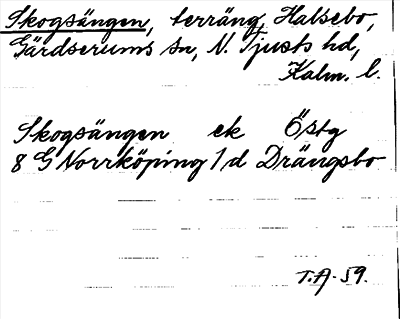 Skogsängen, terräng, Halsebo,
Gärdserums sn, N. Tjusts hd,
Kalm. l.
Skogsängen ek Östg
8 G Norrköping 1 d Drängsbo
T.A. 59.